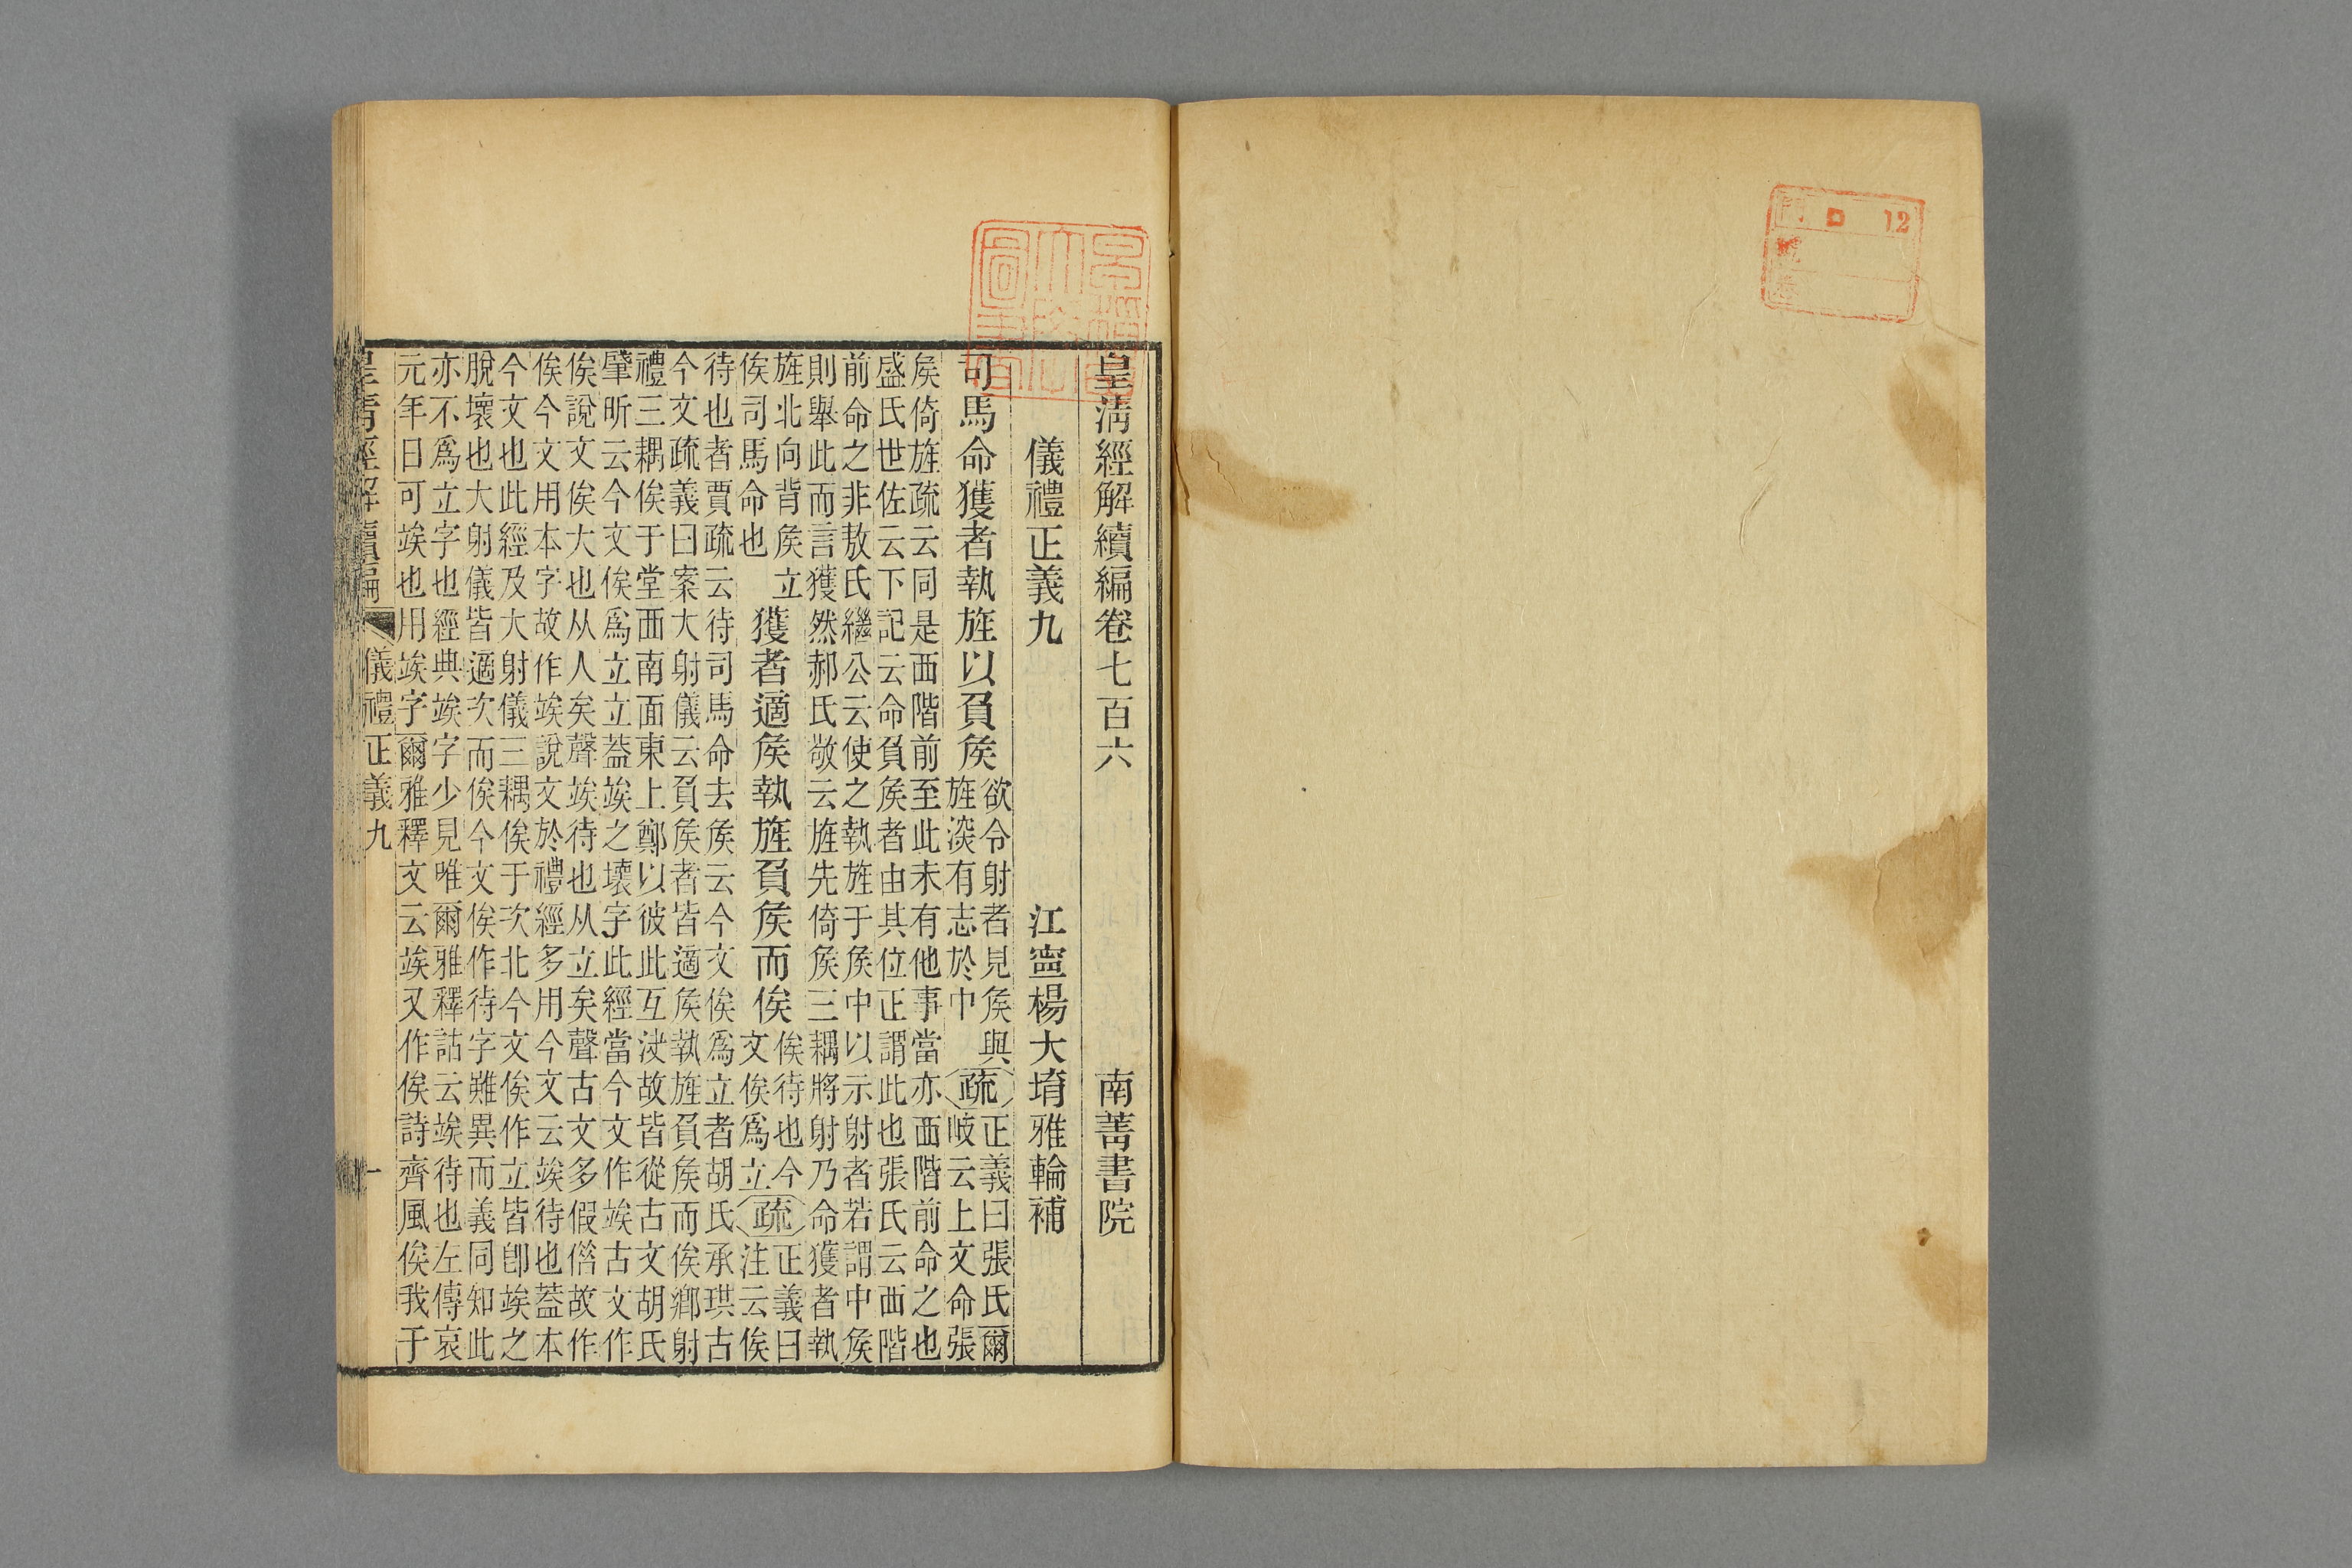 皇清經解續編卷七百六　南菁書院
儀禮正義九　江寧楊大堉雅輪補
司馬命獲者執旌以負矦
欲令射者見矦與
旌深有志於中
疏
正義曰張氏爾
岐云上文命張
矦倚旌疏云同是西階前至此未有他事當亦西階前命之也
盛氏世佐云下記云命負矦者由其位正謂此也張氏云西階
前命之非敖氏繼公云使之執旌于矦中以示射者若謂中矦
則舉此而言獲然郝氏敬云旌先倚矦三耦將射乃命獲者執
旌北向背矦立
俟司馬命也
獲者適矦執旌負矦而俟
俟待也今
文俟爲立
疏
正義曰
注云俟
待也者賈疏云待司馬命去矦云今文俟爲立者胡氏承珙古
今文疏義曰案大射儀云負矦者皆適矦執旌負矦而俟鄉射
禮三耦俟于堂西南面東上鄭以彼此互決故皆從古文胡氏
肈昕云今文俟爲立立葢竢之壞字此經當今文作竢古文作
俟說文俟大也从人矣聲竢待也从立矣聲古文多假借故作
俟今文用本字故作竢說文於禮經多用今文云竢待也葢本
今文也此經及大射儀三耦俟于次北今文俟作立皆卽竢之
脫壞也大射儀皆適次而俟今文俟作待字雖異而義同知此
亦不爲立字也經典竢字少見唯爾雅釋詁云竢待也左傳哀
元年日可竢也用竢字爾雅釋文云竢又作俟詩齊風俟我于
皇清經解續編　儀禮正義九　一
12